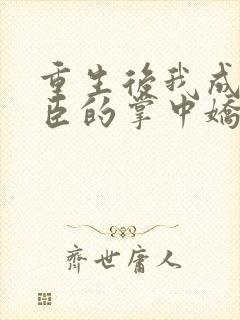 重生後我成
臣的掌中嬌
齊世庸人